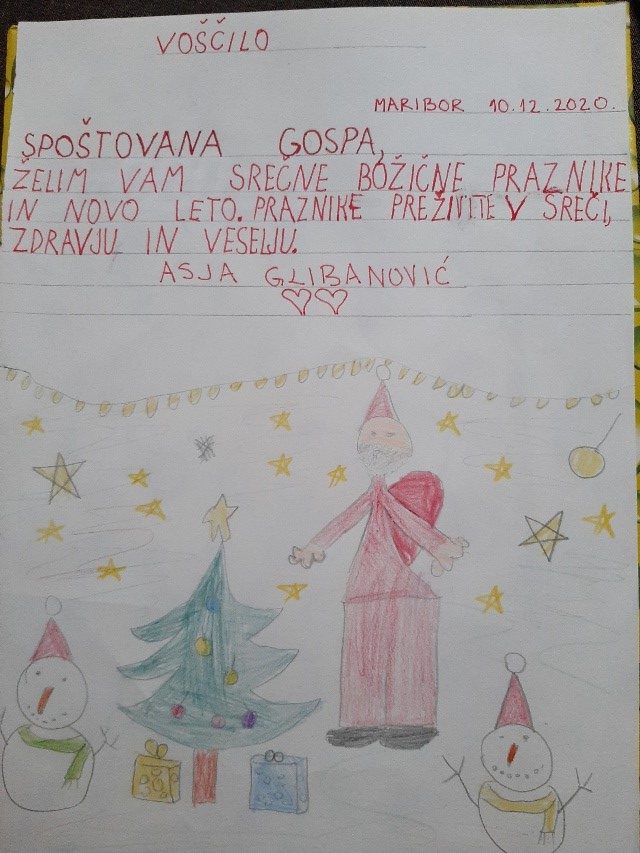 VOŠČILO
MARIBOR 10.12.2020.
SPOŠTOVANA GOSPA,
ŽELIM VAM SREČNE BOŽIČNE PRAZNIKE
IN NOVO LETO. PRAZNIKE PREŽIVITE V SREČI,
ZDRAVJU IN VESELJU.
ASJA GLIBANOVIĆ